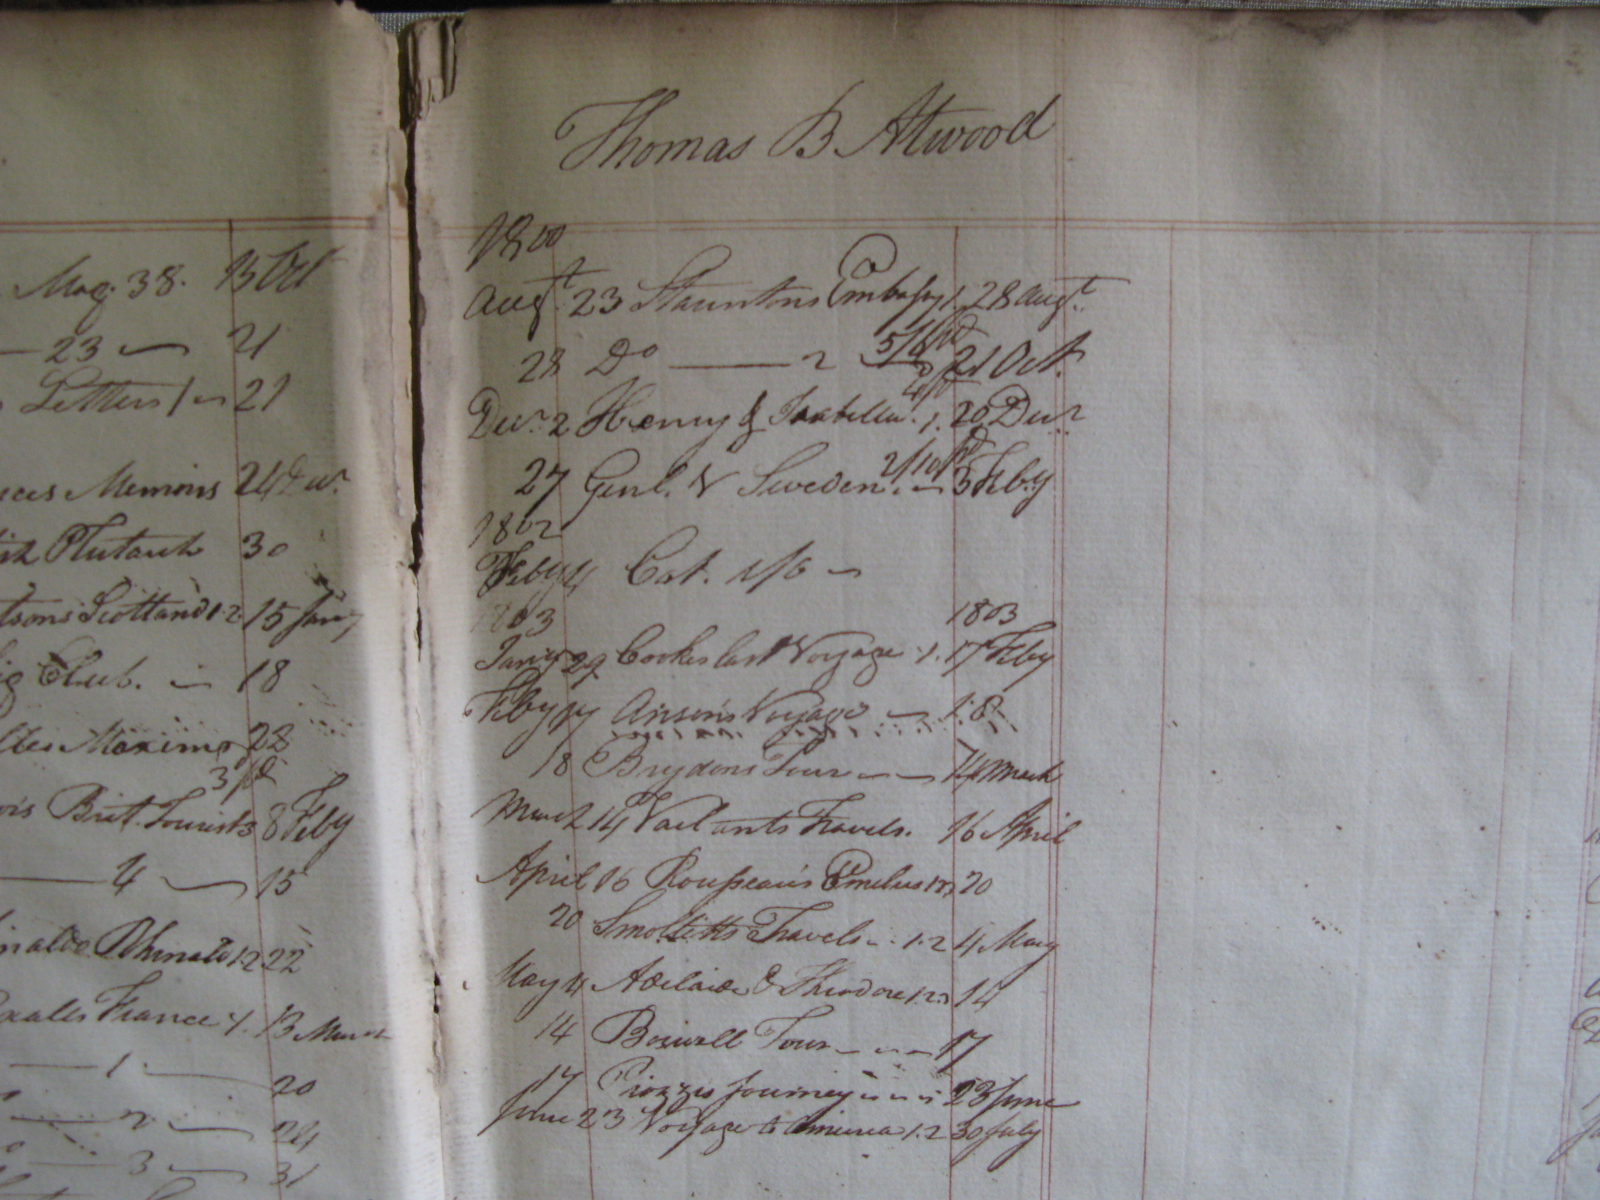 Mag. 38. 13 Oct
23 21
Letters 1 21
Memoirs 24 Decr.
Plutarch 30
Scotland 1.2 15 Jany
Club. 18
Maxims 28
3/pd
Brit. Tourists 8 Feby
4 15
Rhinaldo 1.2 22
France 1. 13 March
1 20
2 24
3 31
Thomas B Atwood
1800
Augt. 23 Stauntons Embassy 1, 28 Augt.
28 Do 2 21 Oct.
Decr. 2 Henry & Isabella. 1. 20 Decr
27 Genl. V Sweden. 5 Feby
1802
Feby 4 Cat. 1/6
1803 1803
Jany 29 Cookes last Voyage 1. 17 Feby
Feby 17 Ansons Voyage 18
18 Brydons Tour 14 March
March 14 Vailants Travels. 16 April
April 16 Rousseau's Emelius 20
20 Smolletts Travels 1.2 4 May
May 4 Adelaide & Theodore 1.2.3 14
14 Boswell Tour 17
17 Piozzis Journey 23 June
June 23 Voyage to 1.2 30 July